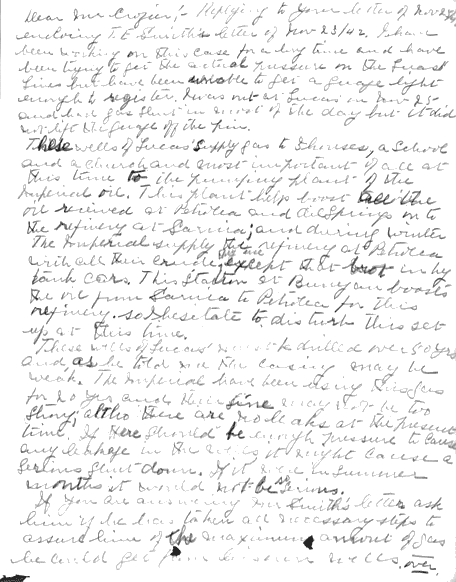 Dear Mr Crozier;- Replying to your letter of Nov 25/42
enclosing T.E. Smith's letter of Nov 23/42. I have
been working on this case for a long time and have
been trying to get the actual pressure on the
lines but have been unable to get a guage light
enough to register. I was out at Lucas' on Nov 25
and had gas shut in most of the day but it did
not lift the guage off the pin.
These wells of Lucas' supply gas to houses, a School
and a church and most important of all at
this time to the pumping plant of the
Imperial oil. This plant helps boost all the
oil recived at Petrolea and Oil Springs on to
the refinery at Sarnia; and during winter
The Imperial supply the refinery at Petrolea
with all their crude, except that brot in by
tank cars. This Station at Bunyan boosts
the oil from Sarnia to Petrolea for this
refinery. So hesitate to disturb this set
up at this time.
These wells of Lucas' must be drilled over 50 yrs
and as he told me the casing may be
weak. The Imperial have been using this gas
for 20 yrs and their line may not be too
strong, altho there are no leaks at the present
time. If there should be enough pressure to cause
any leakage in the wells it might cause a
serious shut down. If it were in Summer
months it would not be as serious.
If you are answering Mr Smith's letter ask
him if he has taken all necessary steps to
assure him of the maximum amount of gas
he could get from his own wells. over